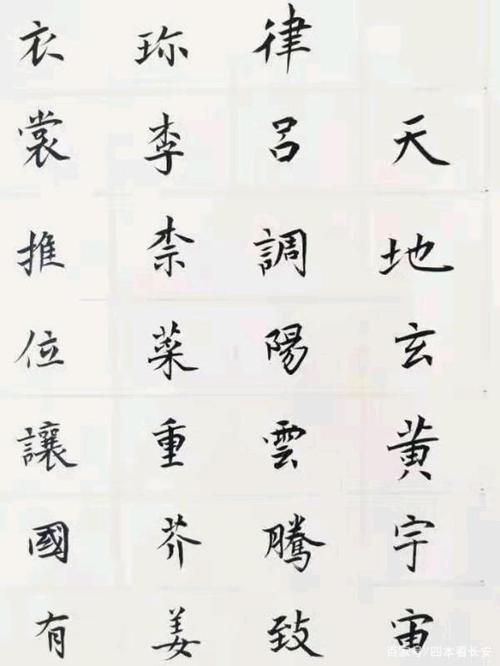 天地玄黄宇宙
律吕調陽雲騰致
珎李柰菜重芥姜
衣裳推位讓國有
百家号/四本看长安